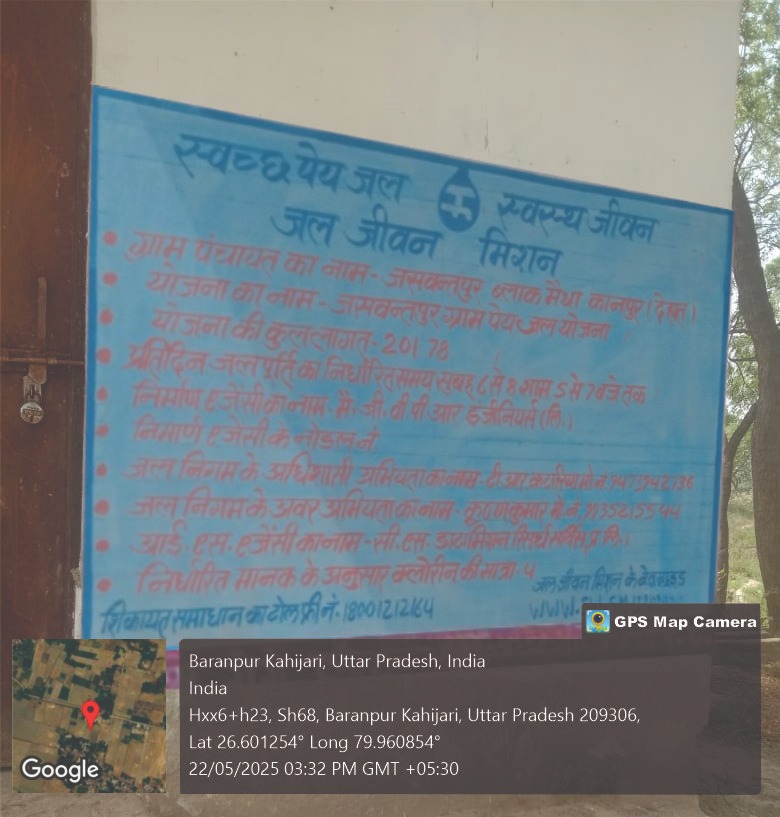 स्वच्छ पेय जल स्वस्थ जीवन
जल जीवन मिशन
ग्राम पंचायत का नाम - जसवन्तपुर ब्लाक मैथा कानपुर (देहात)
योजना का नाम - जसवन्तपुर ग्राम पेयजल योजना
योजना की कुल लागत - 201 78
प्रतिदिन जलपूर्ति का निर्धारित समय सुबह 6 से 8 शाम 5 से 7 बजे तक
निर्माण एजेंसी का नाम - मै. जी. वी पी. आर इंजीनियर्स (लि.)
निमार्ण एजेंसी के नोडल नं
जल निगम के अधिशासी अभियंता का नाम - टी. आर.
जल निगम के अवर अभियंता का नाम - कृष्ण कुमार
आई. एस. एजेंसी का नाम - सी. एस. प्रा. लि.
निर्धारित मानक के अनुसार क्लोरिन की मात्रा - 4
जल जीवन मिशन के
शिकायत समाधान का टोल फ्री नं. 18001212164
GPS Map Camera
Baranpur Kahijari, Uttar Pradesh, India
India
Hxx6+h23, Sh68, Baranpur Kahijari, Uttar Pradesh 209306,
Lat 26.601254° Long 79.960854°
22/05/2025 03:32 PM GMT +05:30
Google